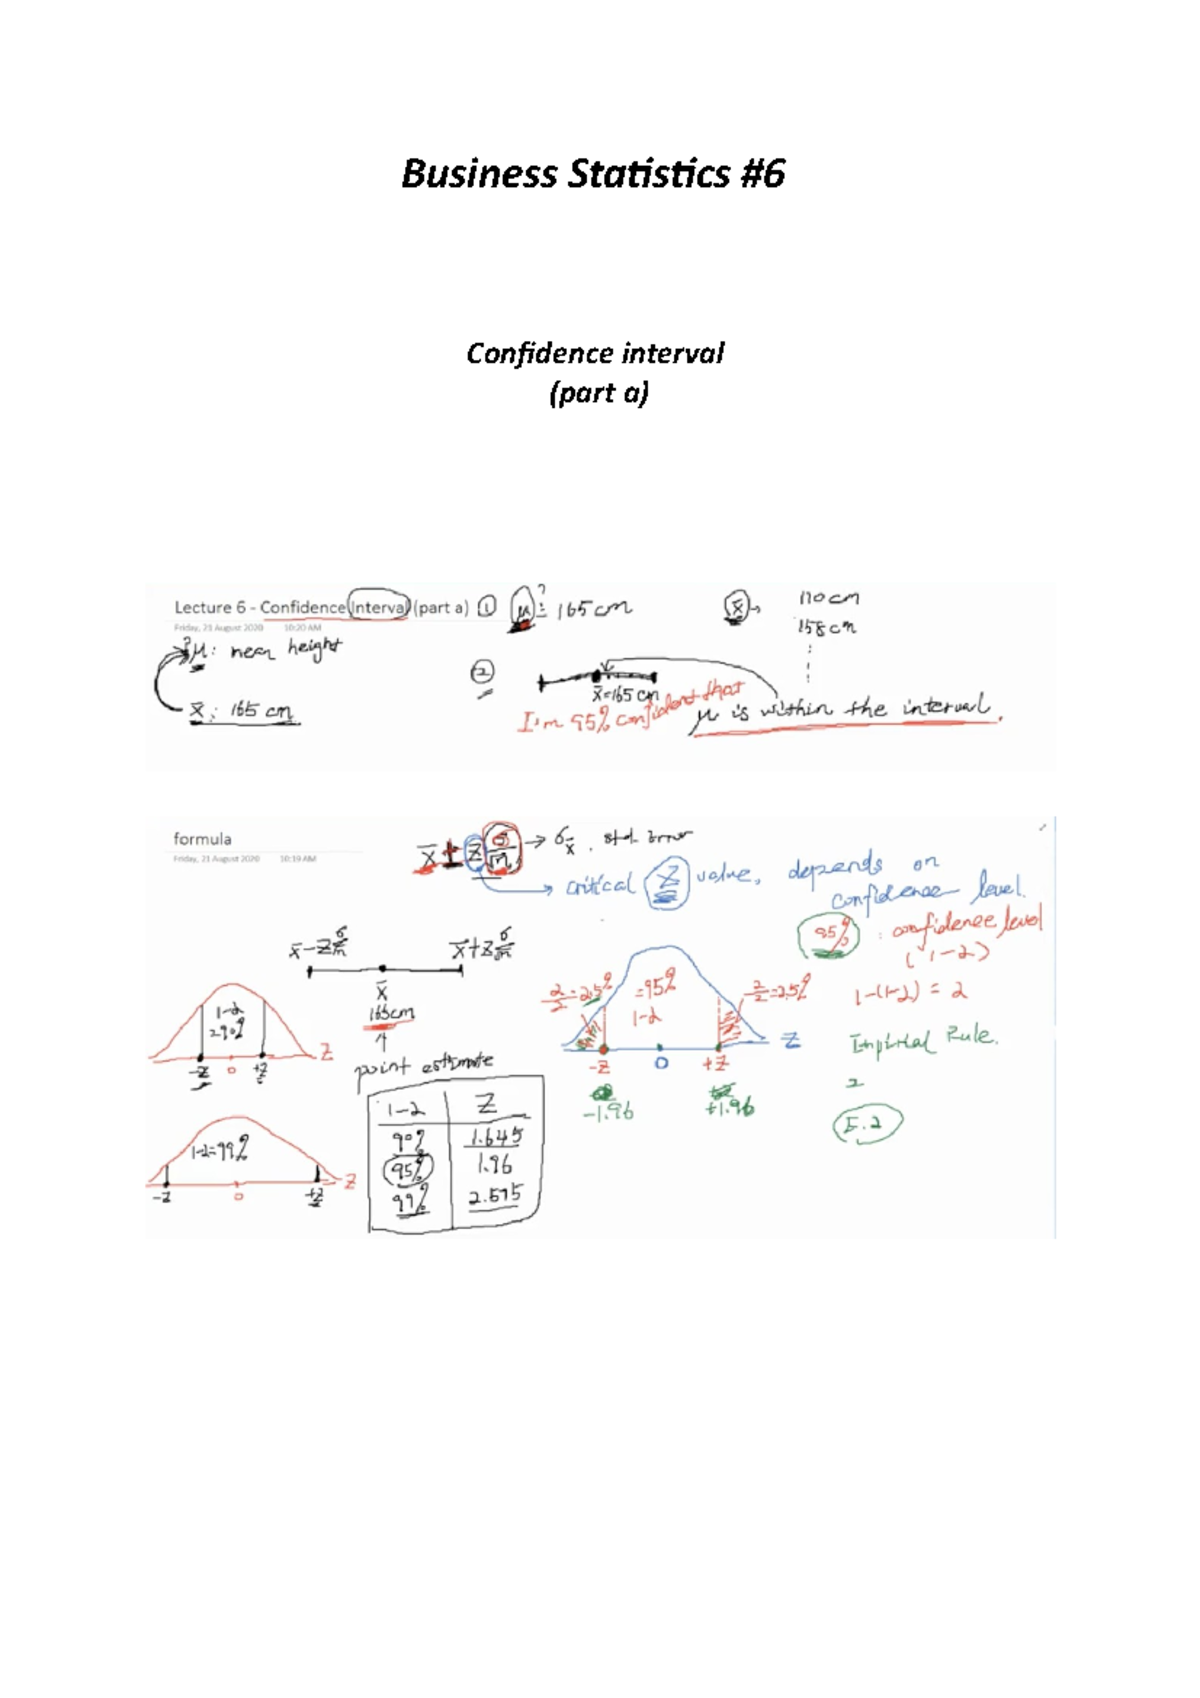 Business Statistics #6
Confidence interval
(part a)
Lecture 6 - Confidence Interval (part a)
Friday, 21 August 2020 10:20 AM
① μ = 165 cm
?
x̄ →
170 cm
158 cm
?μ: mean height
x̄: 165 cm
②
x̄=165 cm
I'm 95% confident that
μ is within the interval.
formula
Friday, 21 August 2020 10:19 AM
x̄ ± z σ/√n → σx̄ , std. Error
critical Z value, depends on
confidence level.
95% : confidence level
(1-α)
1-(1-α) = α
Empirial Rule.
2
E.2
x̄-zσ/√n x̄+zσ/√n
x̄
165cm
point estimate
1-α
=90%
-z 0 +z Z
1-α=99%
-z 0 +z Z
1-α Z
90% 1.645
95% 1.96
99% 2.575
α/2=2.5% =95% α/2=2.5%
1-α
-z 0 +z Z
-1.96 +1.96